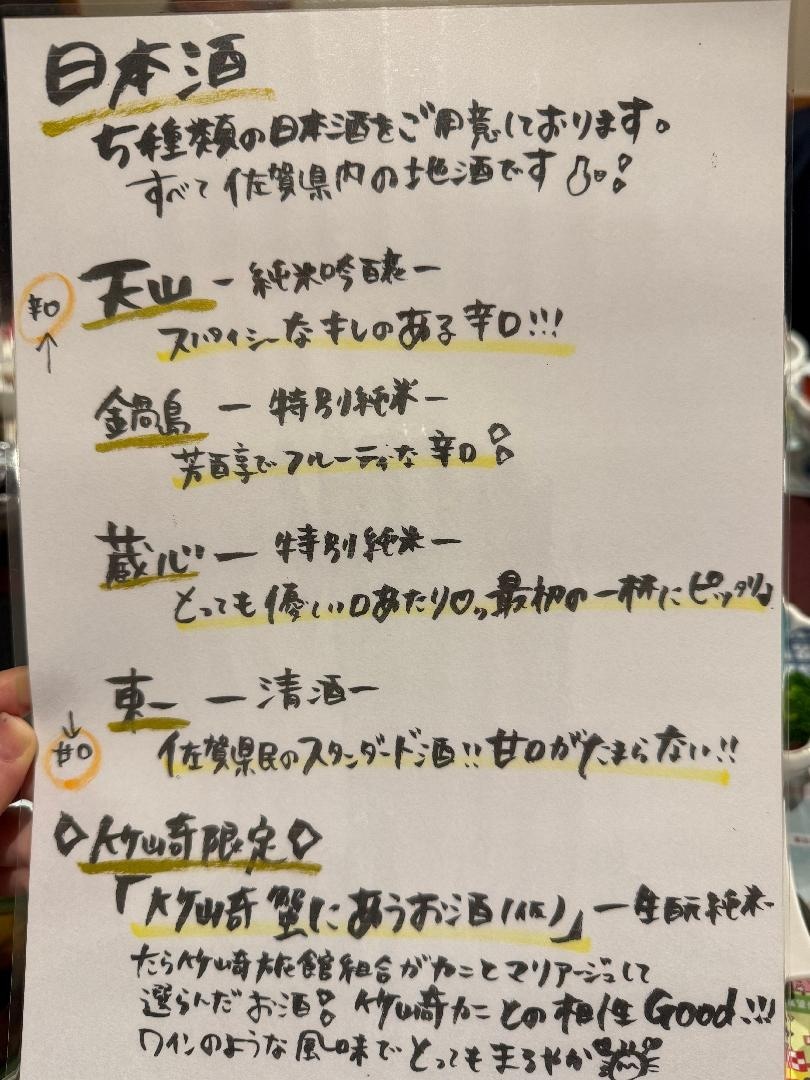 日本酒
5種類の日本酒をご用意しております。
すべて佐賀県内の地酒です
辛口
天山 ー純米吟醸ー
スパイシーなキレのある辛口!!!
鍋島 ー特別純米ー
芳醇でフルーティな辛口
蔵心 ー特別純米ー
とっても優しい口あたり♡。最初の一杯にピッタリ♪
東一 ー清酒ー
甘口
佐賀県民のスタンダード酒!!甘口がたまらない!!
◇竹崎限定◇
「竹崎蟹にあうお酒(仮)」ー生酛純米ー
たら竹崎旅館組合がカニとマリアージュして
選らんだお酒 竹崎カニとの相性Good!!!
ワインのような風味でとってもまろやか